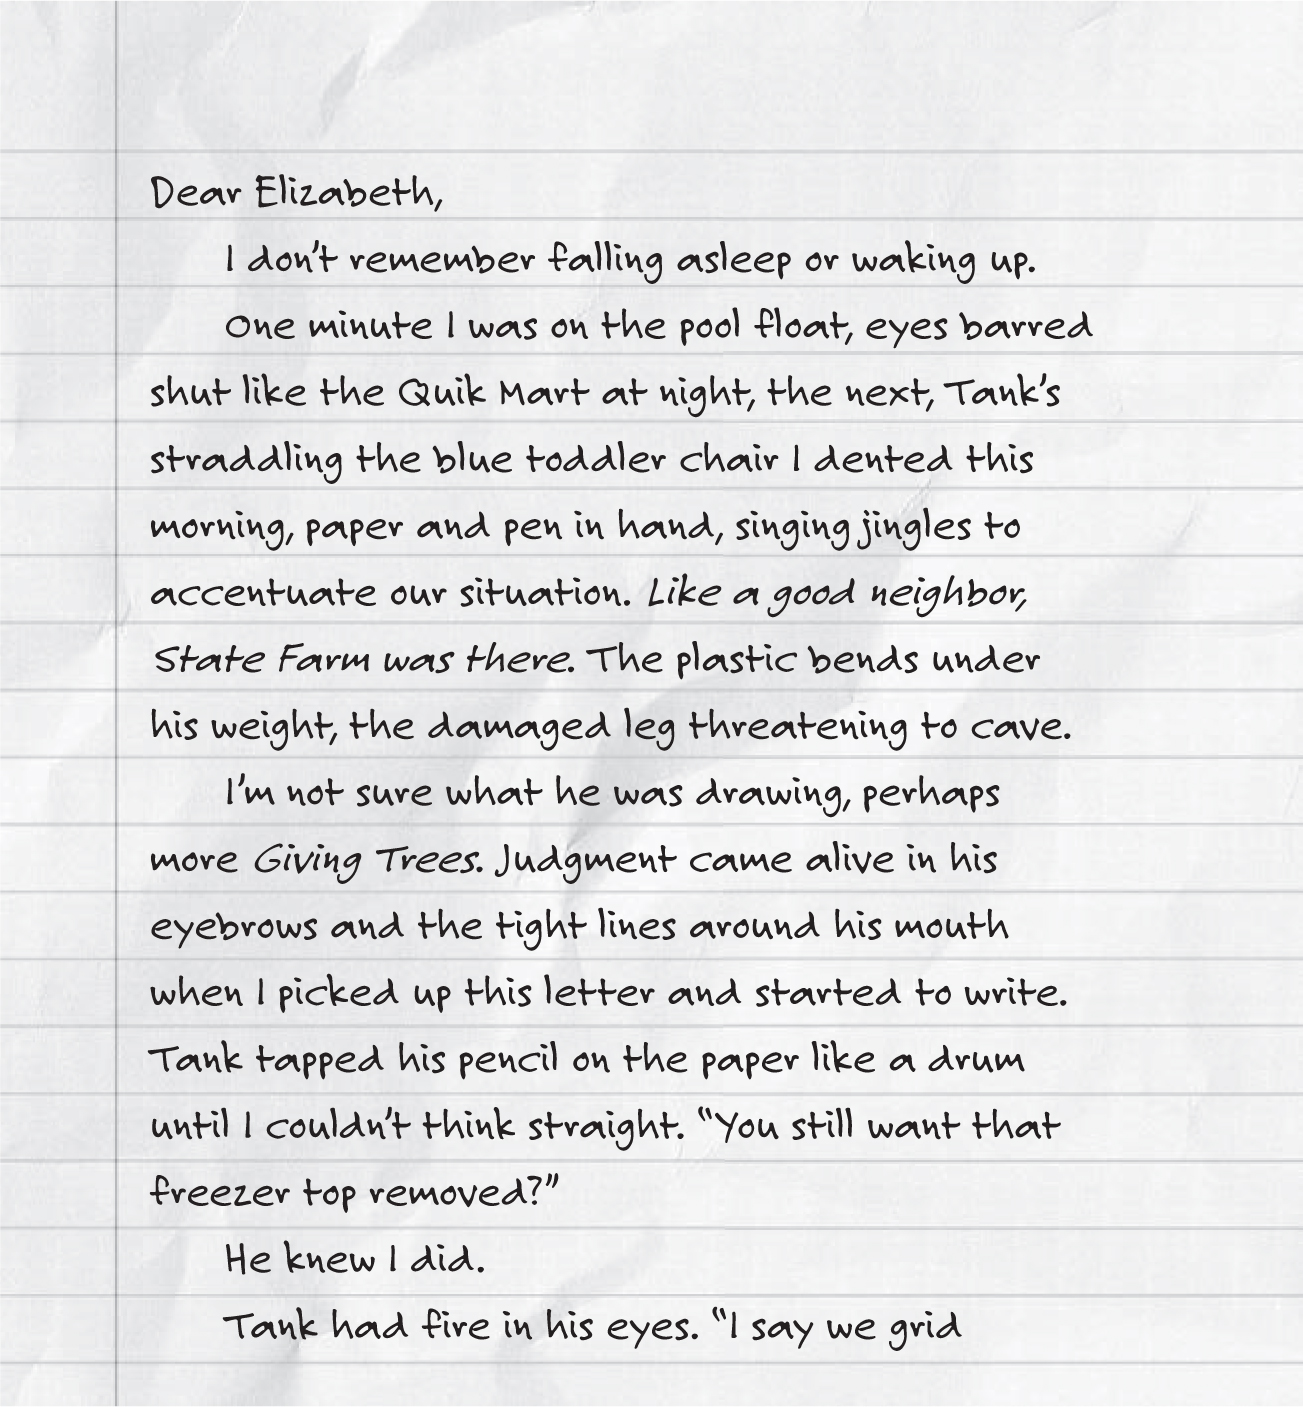 Dear Elizabeth,
I don't remember falling asleep or waking up.
One minute I was on the pool float, eyes barred
shut like the Quik Mart at night, the next, Tank's
straddling the blue toddler chair I dented this
morning, paper and pen in hand, singing jingles to
accentuate our situation. Like a good neighbor,
State Farm was there. The plastic bends under
his weight, the damaged leg threatening to cave.
I'm not sure what he was drawing, perhaps
more Giving Trees. Judgment came alive in his
eyebrows and the tight lines around his mouth
when I picked up this letter and started to write.
Tank tapped his pencil on the paper like a drum
until I couldn't think straight. “You still want that
freezer top removed?”
He knew I did.
Tank had fire in his eyes. “I say we grid